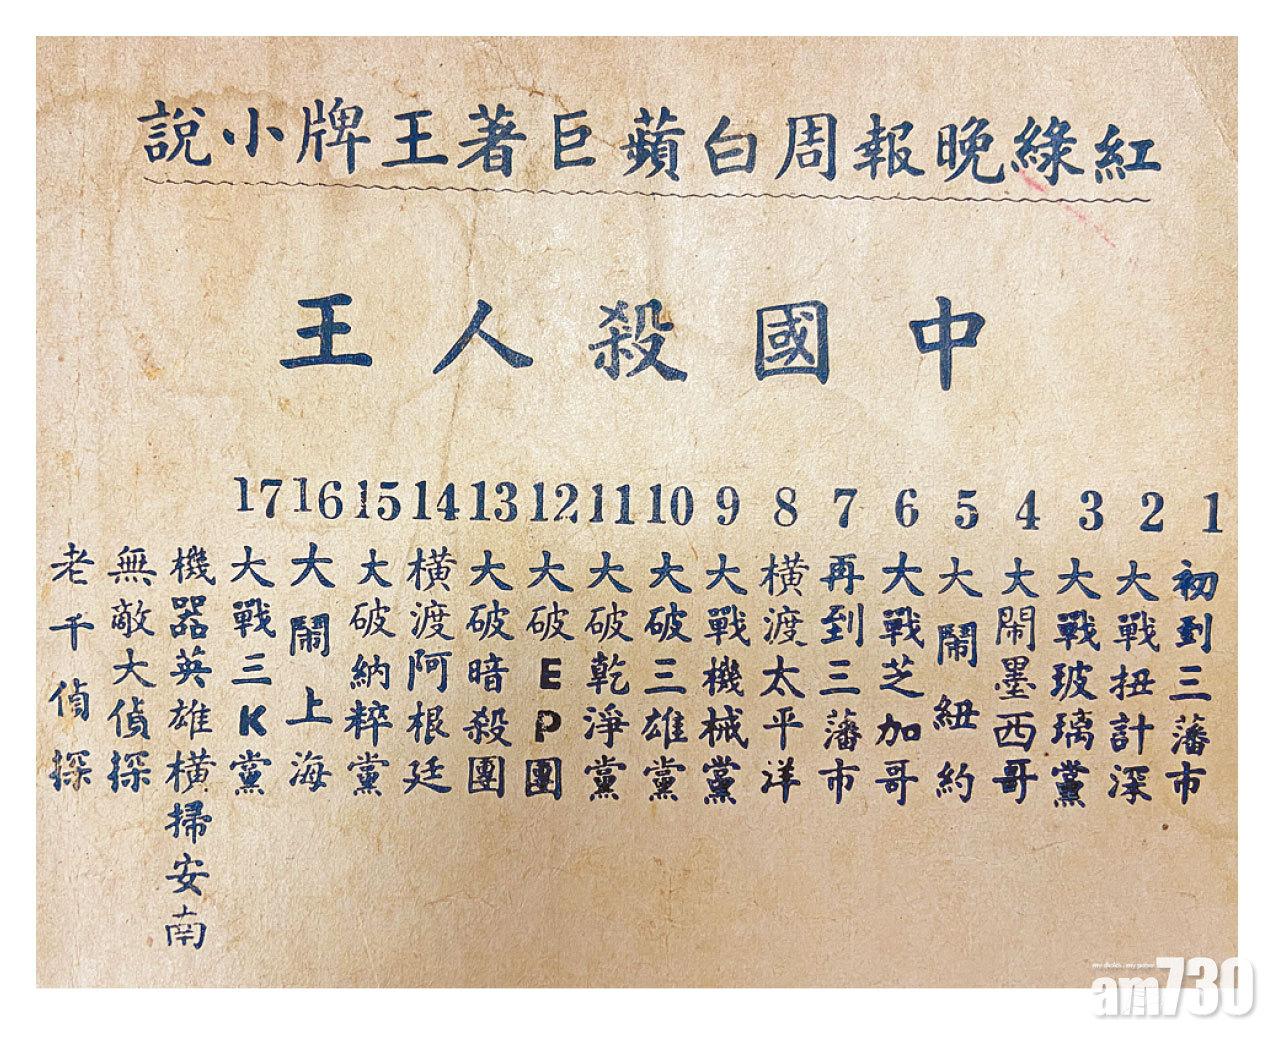 紅綠晚報周白蘋巨著王牌小說
中國殺人王
1 初到三藩市
2 大戰扭計深
3 大戰玻璃黨
4 大閙墨西哥
5 大鬧紐約
6 大戰芝加哥
7 再到三藩市
8 橫渡太平洋
9 大戰機械黨
10 大破三雄黨
11 大破乾淨黨
12 大破EP團
13 大破暗殺團
14 橫渡阿根廷
15 大破納粹黨
16 大鬧上海
17 大戰三K黨
機器英雄橫掃安南
無敵大偵探
老千偵探
am730